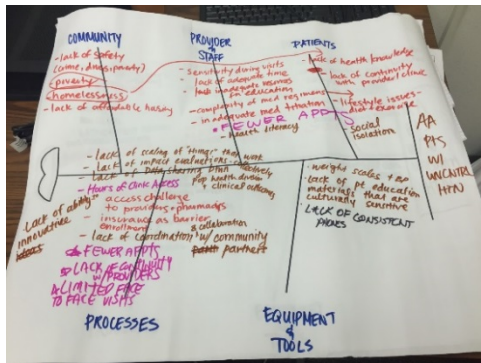 COMMUNITY
- lack of safety
(crime, drugs, poverty)
poverty
homelessness
- lack of affordable housing
PROVIDER
& STAFF
- sensitivity during visits
- lack of adequate time
inadequate resources
for education
- complexity of med regimens
- inadequate med titration
• FEWER APPTS
- health literacy
PATIENTS
- lack of health knowledge
- lack of continuity
with provider/clinic
- lifestyle issues-
diet & exercise
- social
isolation
AA
PTS
W/
UNCNTRL
HTN
- lack of scaling of "things" that work
- lack of impact evaluations
- lack of Data Sharing Plan
for health division
& clinical outcomes
- Hours of Clinic Access
- access challenge
to providers + pharmacists
- insurance as barrier
enrollment
- lack of coordination & collaboration
w/ community
partners
Lack of ability
innovative
ideas
FEWER APPTS
LACK OF CONTINUITY
W/ PROVIDERS
LIMITED FACE
TO FACE VISITS
PROCESSES
- weight scales +
- lack of pt education
materials that are
culturally sensitive
- LACK OF CONSISTENT
PHONES
EQUIPMENT
&
TOOLS